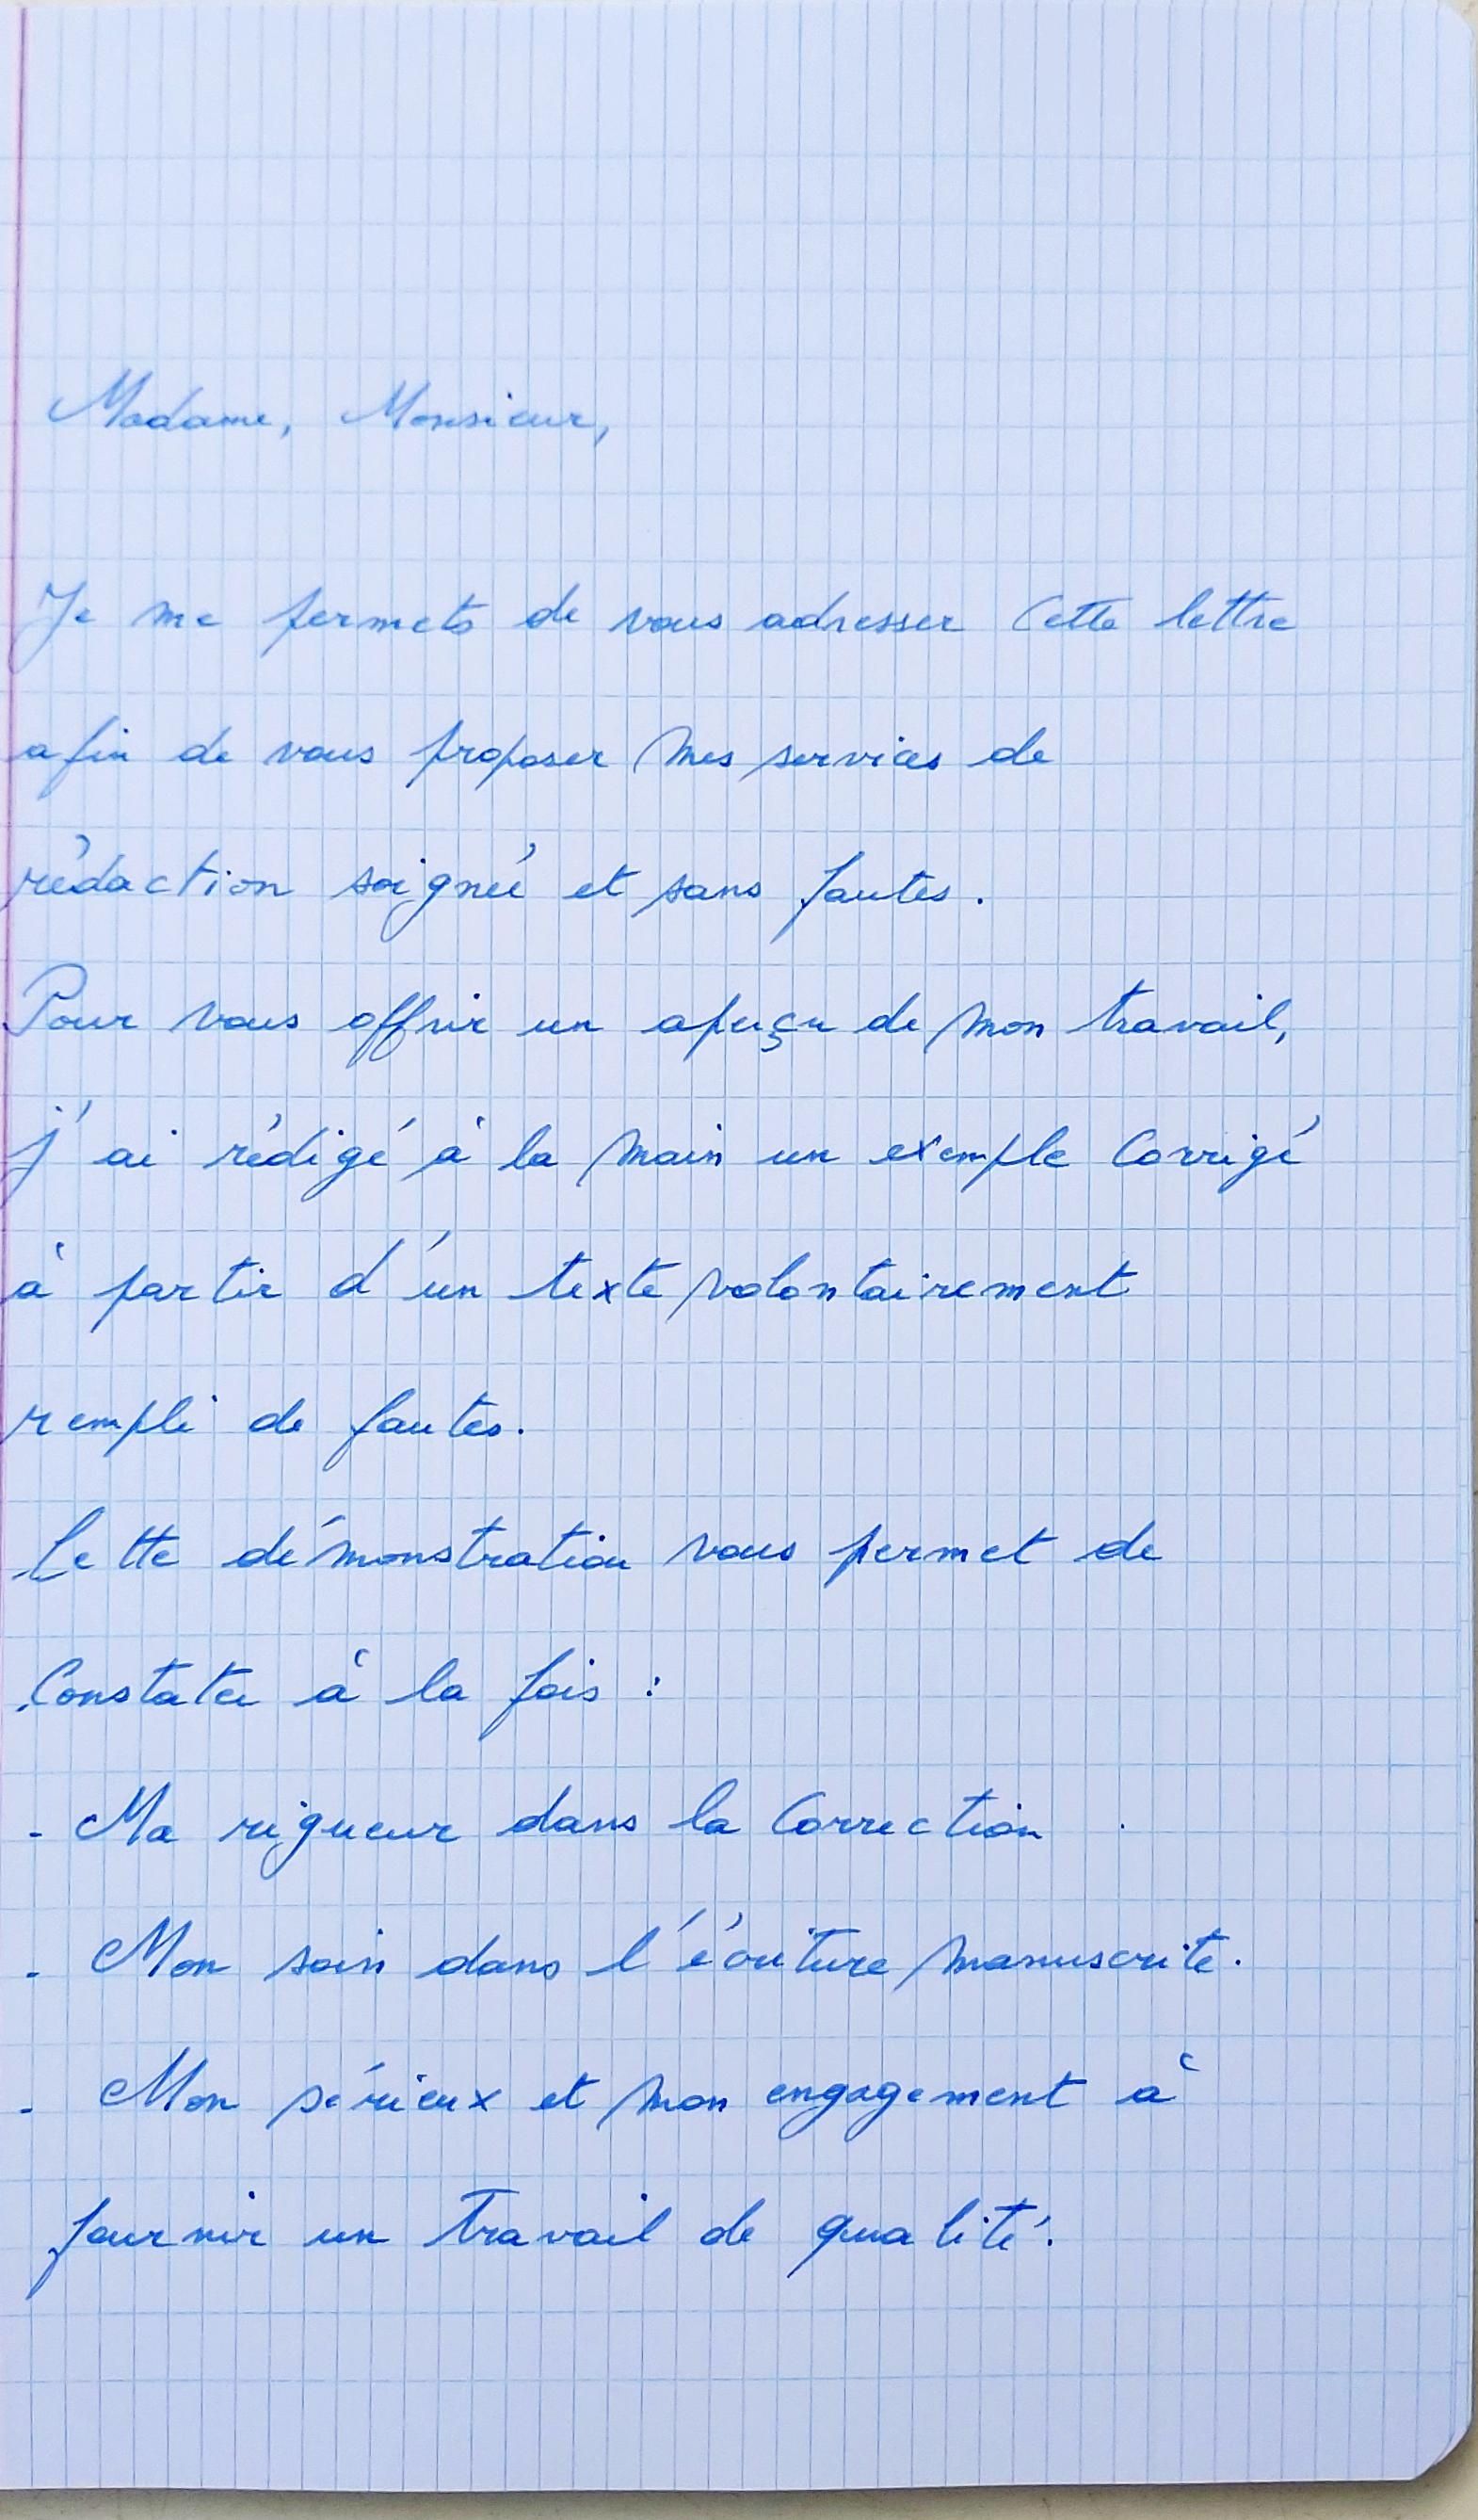 Madame, Monsieur,
Je me permets de vous adresser cette lettre
afin de vous proposer mes services de
rédaction soignée et sans fautes.
Pour vous offrir un aperçu de mon travail,
j'ai rédigé à la main un exemple corrigé
à partir d'un texte volontairement
rempli de fautes.
Cette démonstration vous permet de
constater à la fois :
- Ma rigueur dans la correction
- Mon soin dans l'écriture manuscrite.
- Mon sérieux et mon engagement à
fournir un travail de qualité.